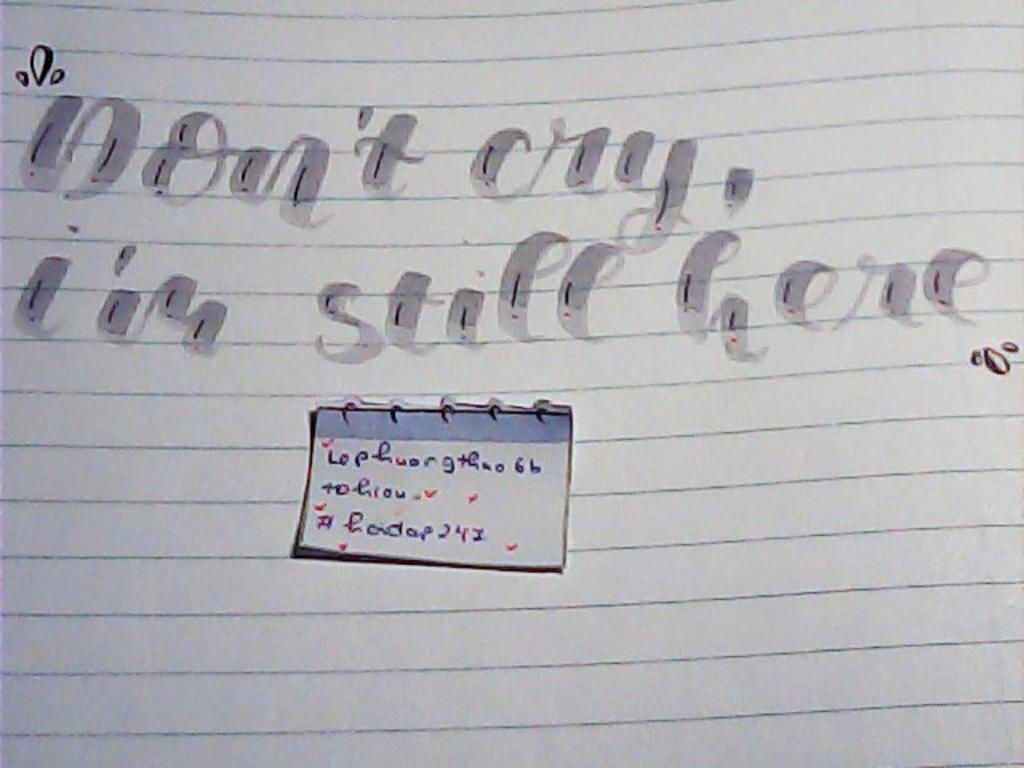 Don't cry,
i'm still here
Lophuongthao6b
tohieu.
# hoidap247